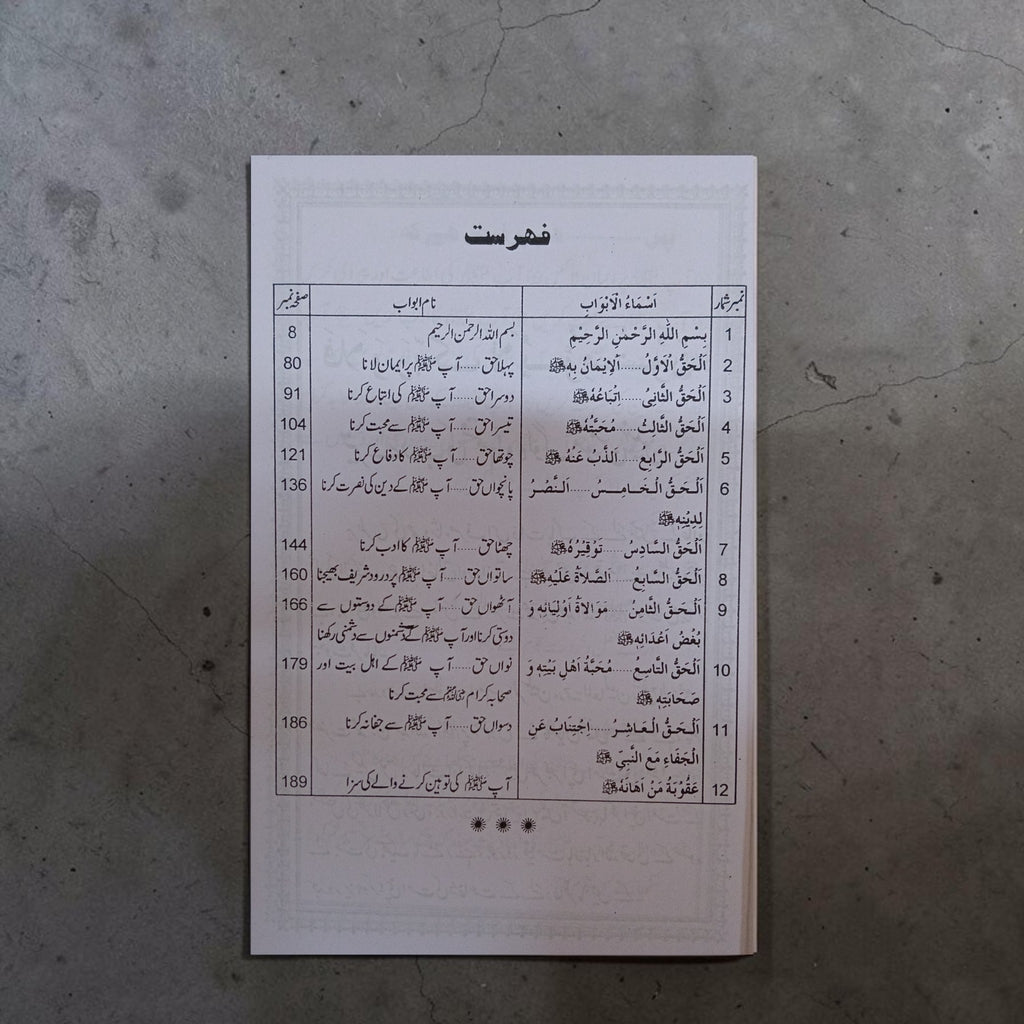 فهرست
نمبر شمار اَسْمَاءُ الْاَبْوَابِ نام ابواب صفحہ نمبر
1 بِسْمِ اللّٰهِ الرَّحْمٰنِ الرَّحِيْمِ بسم اللہ الرحمٰن الرحیم 8
2 اَلْحَقُّ الْاَوَّلُ......اَلْاِيْمَانُ بِهٖ ﷺ پہلا حق......آپ ﷺ پر ایمان لانا 80
3 اَلْحَقُّ الثَّانِیْ......اِتِّبَاعُهٗ ﷺ دوسرا حق......آپ ﷺ کی اتباع کرنا 91
4 اَلْحَقُّ الثَّالِثُ......مُحَبَّتُهٗ ﷺ تیسرا حق......آپ ﷺ سے محبت کرنا 104
5 اَلْحَقُّ الرَّابِعُ......اَلذَّبُّ عَنْهُ ﷺ چوتھا حق......آپ ﷺ کا دفاع کرنا 121
6 اَلْحَقُّ الْخَامِسُ......اَلنَّصْرُ پانچواں حق......آپ ﷺ کے دین کی نصرت کرنا 136
لِدِيْنِهٖ ﷺ
7 اَلْحَقُّ السَّادِسُ......تَوْقِيْرُهٗ ﷺ چھٹا حق......آپ ﷺ کا ادب کرنا 144
8 اَلْحَقُّ السَّابِعُ......اَلصَّلَاةُ عَلَيْهِ ﷺ ساتواں حق......آپ ﷺ پر درود شریف بھیجنا 160
9 اَلْحَقُّ الثَّامِنُ......مَوَالَاةُ اَوْلِيَائِهٖ وَ آٹھواں حق......آپ ﷺ کے دوستوں سے 166
بُغْضُ اَعْدَائِهٖ ﷺ دوستی کرنا اور آپ ﷺ کے دشمنوں سے دشمنی رکھنا
10 اَلْحَقُّ التَّاسِعُ......مُحَبَّةُ اَهْلِ بَيْتِهٖ وَ نواں حق......آپ ﷺ کے اہل بیت اور 179
صَحَابَتِهٖ ﷺ صحابہ کرام سے محبت کرنا
11 اَلْحَقُّ الْعَاشِرُ......اِجْتِنَابُ عَنِ دسواں حق......آپ ﷺ سے جفا نہ کرنا 186
الْجَفَاءِ مَعَ النَّبِيِّ ﷺ
12 عَقُوْبَةُ مَنْ اَهَانَهٗ ﷺ آپ ﷺ کی توہین کرنے والے کی سزا 189